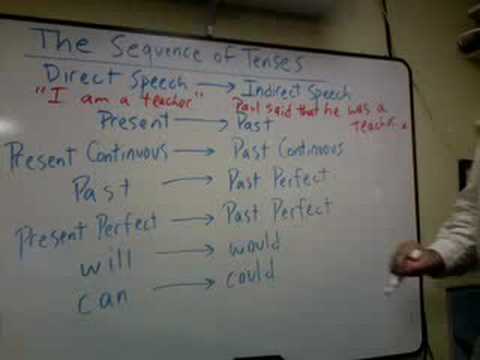 The Sequence of Tenses
Direct Speech → Indirect Speech
"I am a teacher" Paul said that he was a teacher.
Present → Past
Present Continuous → Past Continuous
Past → Past Perfect
Present Perfect → Past Perfect
will → would
can → could